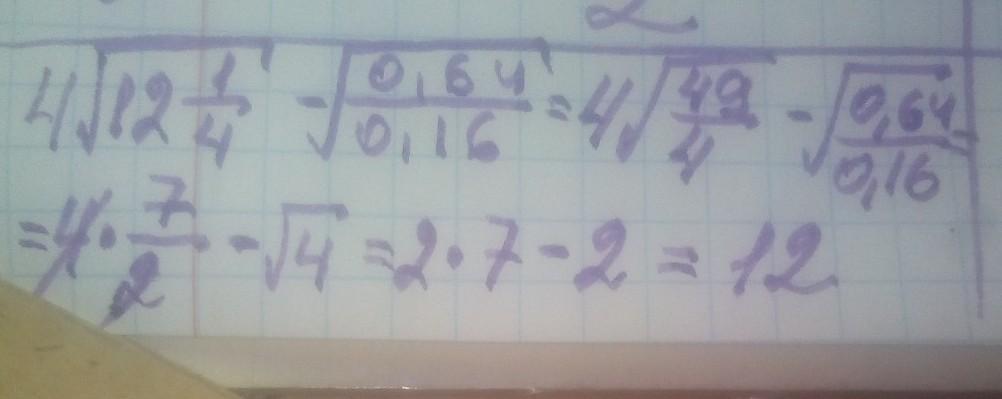 2
4√12 1/4 - √0,64/0,16 = 4√49/4 - √0,64/0,16 =
= 4 · 7/2 - √4 = 2 · 7 - 2 = 12